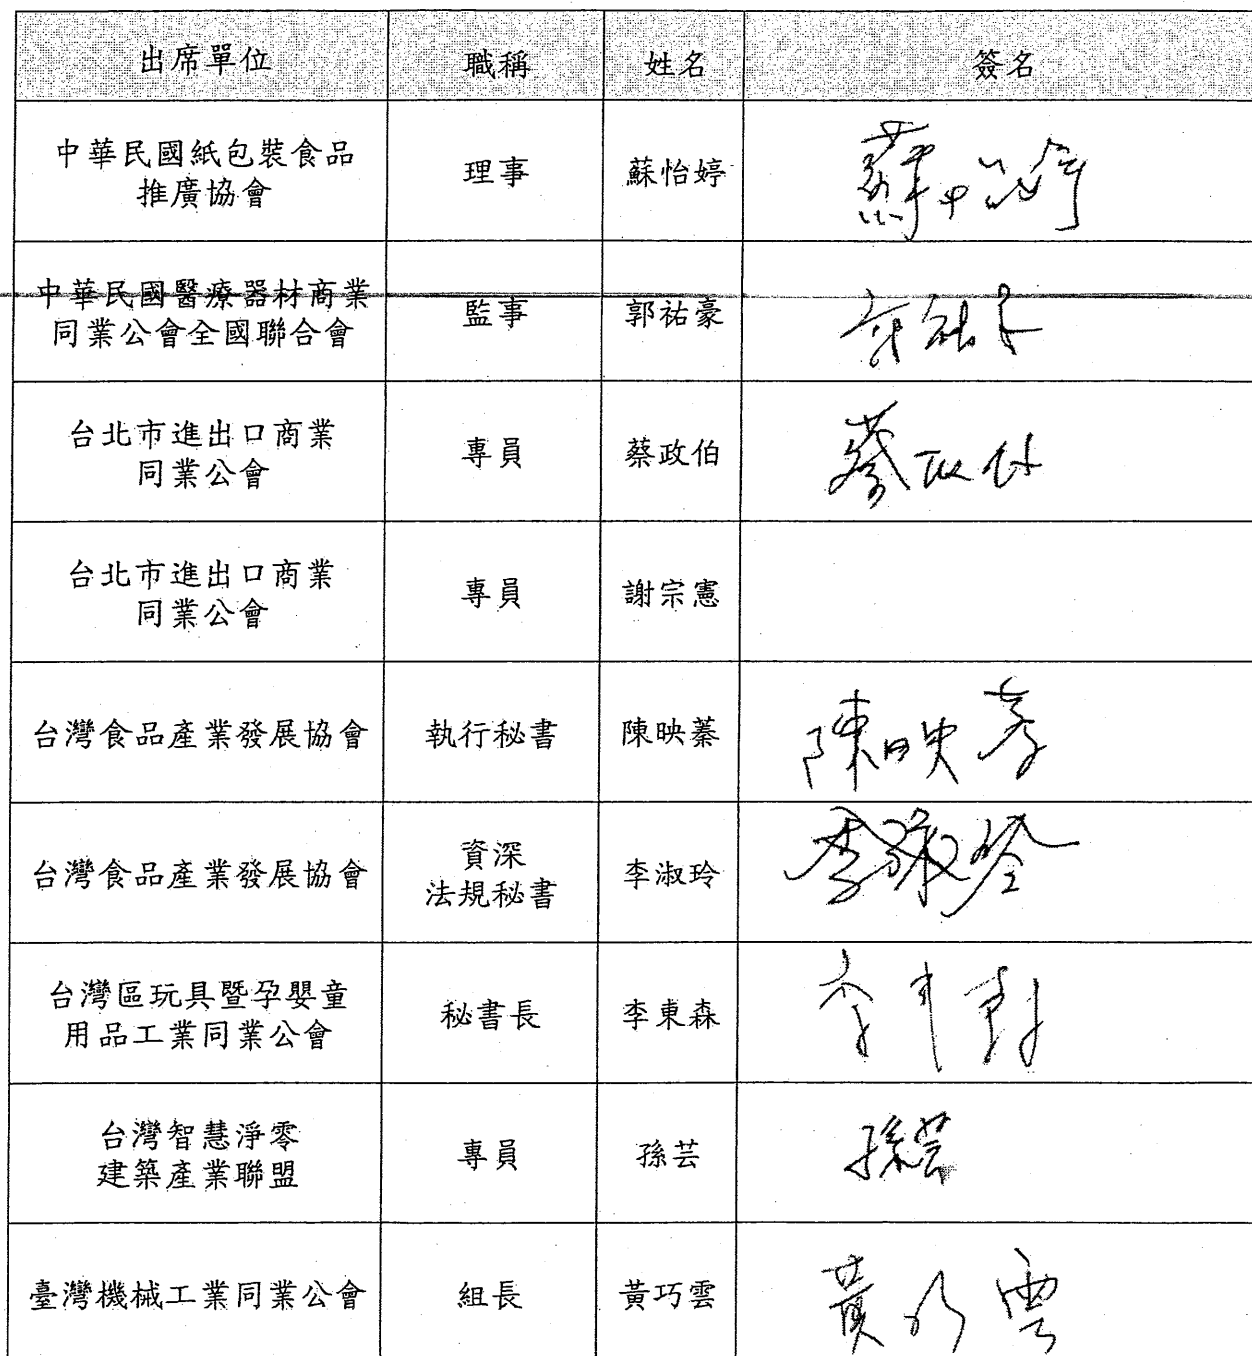 出席單位 職稱 姓名 簽名
中華民國紙包裝食品
推廣協會
理事 蘇怡婷 蘇怡婷
中華民國醫療器材商業
同業公會全國聯合會
監事 郭祐豪
台北市進出口商業
同業公會
專員 蔡政伯 蔡政伯
台北市進出口商業
同業公會
專員 謝宗憲
台灣食品產業發展協會 執行秘書 陳映蓁 陳映蓁
台灣食品產業發展協會
資深
法規秘書
李淑玲 李淑玲
台灣區玩具暨孕嬰童
用品工業同業公會
秘書長 李東森
台灣智慧淨零
建築產業聯盟
專員 孫芸 孫芸
臺灣機械工業同業公會 組長 黃巧雲 黃巧雲